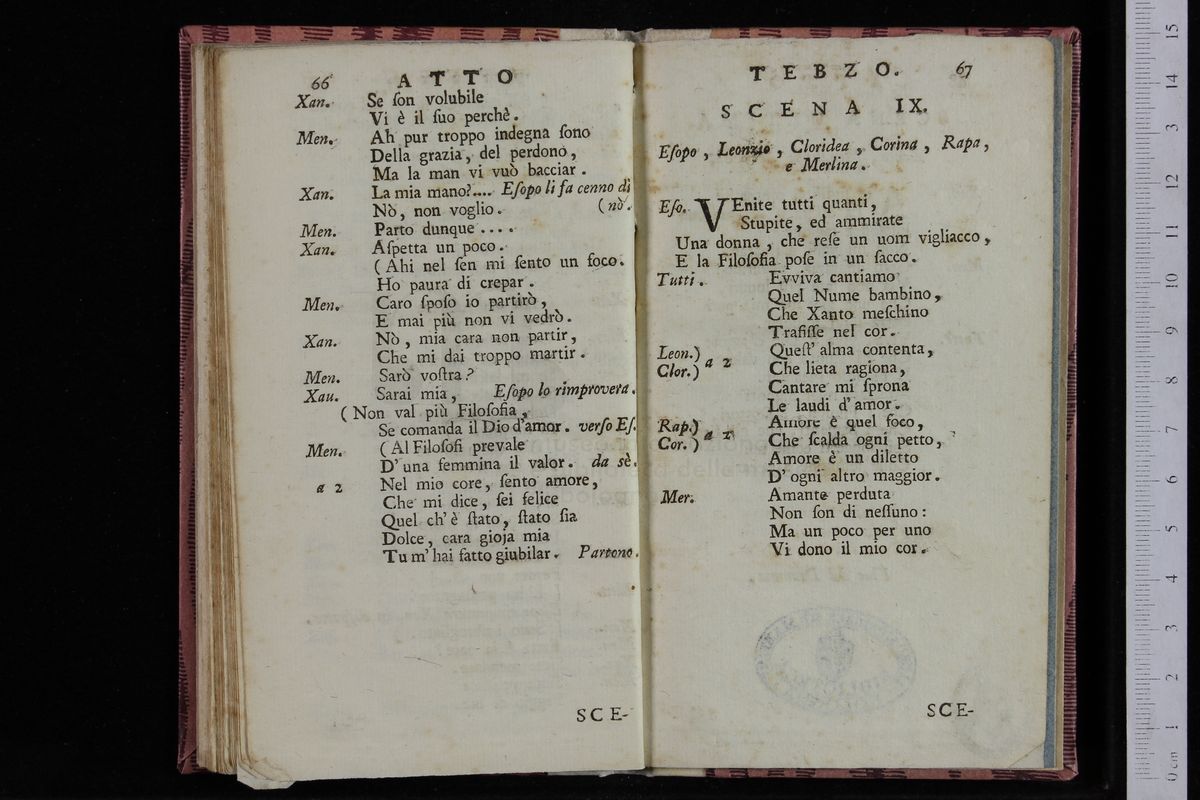 66 ATTO
Xan. Se ſon volubile
Vi è il ſuo perchè.
Men. Ah pur troppo indegna ſono
Della grazia, del perdono,
Ma la man vi vuò bacciar.
Xan. La mia mano?.... Eſopo li fa cenno di
Nò, non voglio. (nò.
Men. Parto dunque....
Xan. Aſpetta un poco.
(Ahi nel ſen mi ſento un foco.
Ho paura di crepar.
Men. Caro ſpoſo io partirò,
E mai più non vi vedrò.
Xan. Nò, mia cara non partir,
Che mi dai troppo martir.
Men. Sarò voſtra?
Xau. Sarai mia, Eſopo lo rimprovera.
(Non val più Filoſofia,
Se comanda il Dio d'amor. verſo Eſ.
Men. (Al Filoſofi prevale
D'una femmina il valor. da sè.
a 2 Nel mio core, ſento amore,
Che mi dice, ſei felice
Quel ch'è ſtato, ſtato ſia
Dolce, cara gioja mia
Tu m'hai fatto giubilar. Partono.
SCE-
TEBZO. 67
SCENA IX.
Eſopo, Leonzio, Cloridea, Corina, Rapa,
e Merlina.
Eſo. VEnite tutti quanti,
Stupite, ed ammirate
Una donna, che reſe un uom vigliacco,
E la Filoſofia poſe in un ſacco.
Tutti. Evviva cantiamo
Quel Nume bambino,
Che Xanto meſchino
Trafiſſe nel cor.
Leon.) a 2 Queſt' alma contenta,
Clor.) Che lieta ragiona,
Cantare mi ſprona
Le laudi d'amor.
Rap.) a 2 Amore è quel foco,
Cor.) Che ſcalda ogni petto,
Amore è un diletto
D'ogni altro maggior.
Mer. Amante perduta
Non ſon di neſſuno:
Ma un poco per uno
Vi dono il mio cor.
SCE-
15
14
3
12
11
10
9
8
7
6
5
4
3
2
1
0 cm